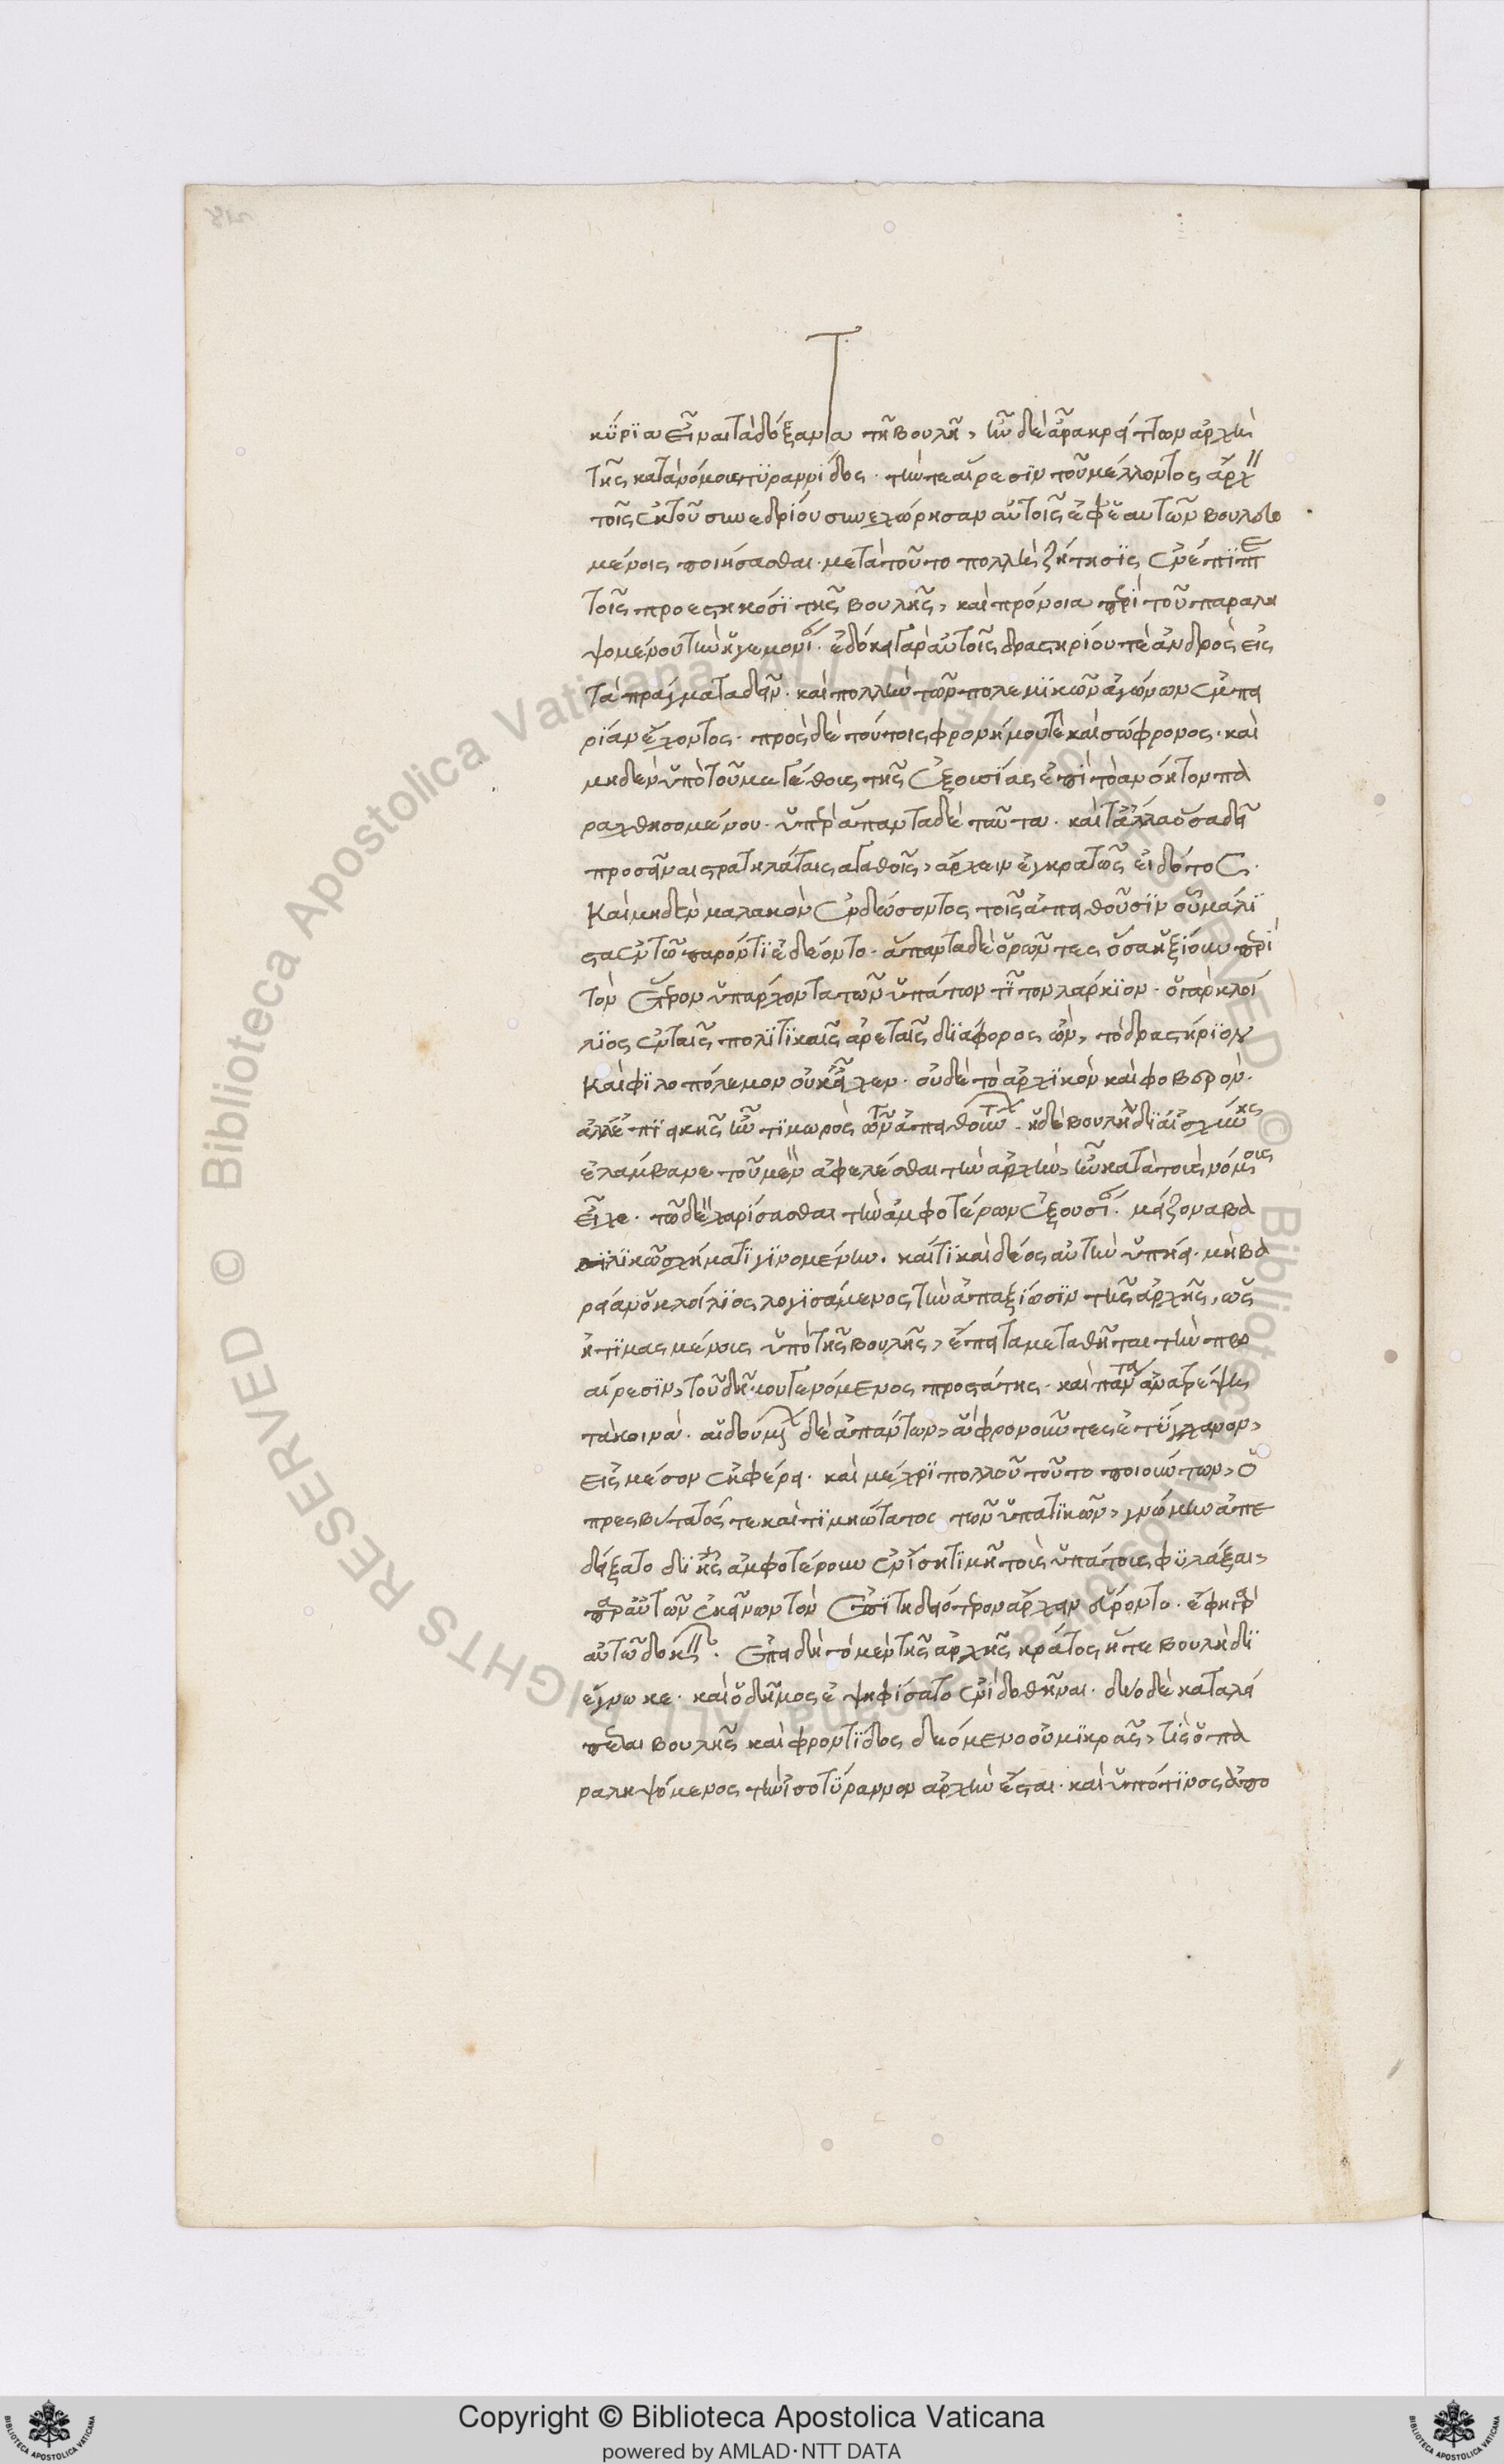 κύρϊα εἶναι τὰ δόξαντα τῆ βουλῆ, ἦν δὲ ἄρα κρείττων ἀρχὴ
τῆς κατὰ νόμους τϋραννίδος· τήν τε αἵρεσϊν τοῦ μέλλοντος ἄρχειν
τοῖς ἐκ τοῦ συνεδρίου συνεχώρησαν αὐτοῖς ἐφ' ἑαυτῶν βουλευο
μένοις ποιήσασθαι· μετὰ τοῦτο πολλὴ ζήτησϊς ἐνέπϊπτε
τοῖς προεστηκόσϊ τῆς βουλῆς, καὶ πρόνοια περὶ τοῦ παραλη
ψομένου τὴν ἡγεμονίαν· ἐδόκει γὰρ αὐτοῖς δραστηρίου τὲ ἀνδρὸς εἰς
τὰ πράγματα δεῖν· καὶ πολλὴν τῶν πολεμϊκῶν ἀγώνων ἐμπει
ρίαν ἔχοντος· πρὸς δὲ τούτοις φρονήμου τὲ καὶ σώφρονος· καὶ
μηδὲν ὑπὸ τοῦ μεγέθους τῆς ἐξουσίας ἐπὶ τὸ ἀνόητον πα
ραχθησομένου· ὑπὲρ ἅπαντα δὲ ταῦτα· καὶ τἄλλα ὅσα δεῖ
προσεῖναι στρατηλάταις ἀγαθοῖς, ἄρχειν ἐγκρατῶς εἰδότος·
καὶ μηδὲν μαλακὸν ἐνδώσοντος τοῖς ἀπειθοῦσϊν οὗ μάλϊ
στα ἐν τῶ παρόντϊ ἐδέοντο· ἅπαντα δὲ ὁρῶντες ὅσα ἠξίουν περὶ
τὸν ἕτερον ὑπάρχοντα τῶν ὑπάτων τῖτον λάρκϊον· ὁ γὰρ κλοί
λϊος ἐν ταῖς πολϊτϊκαῖς ἀρεταῖς δϊάφορος ὢν, τὸ δραστήρϊον
καὶ φϊλοπόλεμον οὐκ εἶχεν· οὐδὲ τὸ ἀρχϊκὸν καὶ φοβερὸν·
ἀλλ' ἐπϊεικὴς ἦν τϊμωρὸς τῶν ἀπειθούντων· ἡ δὲ βουλὴ δϊ' αἰσχύνης
ἐλάμβανε τοῦ μὲν ἀφελέσθαι τὴν ἀρχὴν, ἣν κατὰ τοὺς νόμους
εἶχε· τῶ δὲ χαρίσασθαι τὴν ἀμφοτέρων ἐξουσίαν· μείζονα βα
σϊλϊκῶ σχήματϊ γϊνομένην· καί τϊ καὶ δέος αὐτὴν ὑπήει· μὴ βα
ρεῖαν ὁ κλοίλϊος λογϊσάμενος τὴν ἀπαξίωσϊν τῆς ἀρχῆς, ὡς
ἠτϊμασμένος ὑπὸ τῆς βουλῆς, ἔπειτα μεταθῆται τὴν προ
αίρεσϊν, τοῦ δήμου γενόμενος προστάτης· καὶ πάντα ἀνατρέψη
τὰ κοινά· αἰδουμένων δὲ ἁπάντων, ἃ φρονοῦντες ἐτϋγχανον,
εἰς μέσον ἐκφέρειν· καὶ μέχρϊ πολλοῦ τοῦτο ποιούντων, ὁ
πρεσβύτατός τε καὶ τϊμιώτατος τῶν ὑπατϊκῶν, γνώμην ἀπε
δείξατο δι' ἧς ἀμφοτέρους ἐν ἴση τϊμῆ τοὺς ὑπάτους φϋλάξαι,
παρ' αὐτῶν ἐκείνων τὸν ἐπϊτηδειότερον ἄρχειν εὕροντο· ἔφη γὰρ
αὐτῶ δοκεῖν· ἐπειδὴ τὸ μὲν τῆς ἀρχῆς κράτος ἥ τε βουλὴ δϊ
έγνωκε· καὶ ὁ δῆμος ἐψηφίσατο ἐπϊδοθῆναι· δύο δὲ καταλεί
πεται βουλῆς καὶ φροντϊδος δεόμενα οὐ μϊκρᾶς, τίς ὁ πα
ραληψόμενος τὴν ἰσοτϋραννον ἀρχὴν ἔσται· καὶ ὑπό τϊνος ἀπο